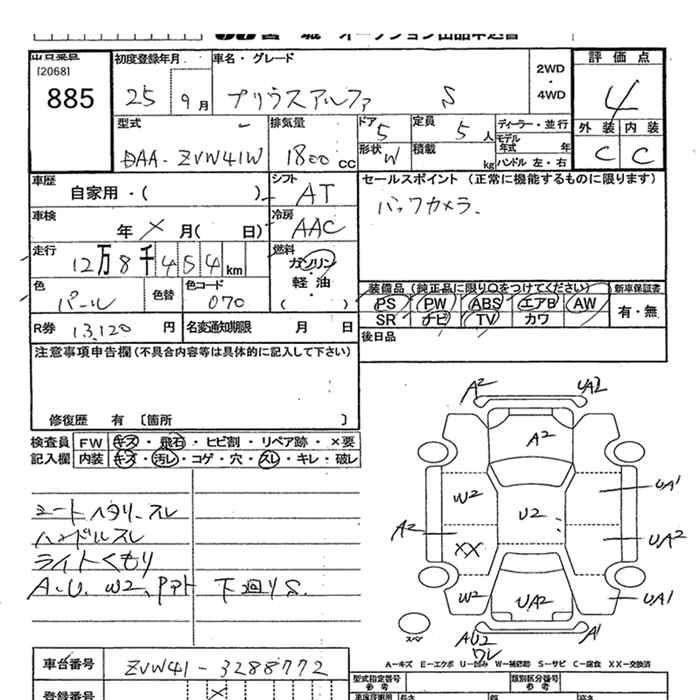 宮城 オークション出品申込書
出品番号 初度登録年月 車名・グレード 評価点
[2068] 2WD・4WD
885 25年 9月 プリウスアルファ S 4
型式 排気量 ドア 5 定員 5人 ディーラー・並行 外装 内装
DAA-ZVW41W 1800cc 形状 W 積載 kg モデル年式 年 C C
ハンドル 左・右
車歴 自家用・( ) シフト AT セールスポイント (正常に機能するものに限ります)
車検 年 × 月( 日) 冷房 AAC バックカメラ.
走行 12万8千454km 燃料 ガソリン・軽油・( )
色 パール 色替 色コード 070 装備品 (純正品に限り○をつけてください) 新車保証書
PS PW ABS エアB AW 有・無
SR ナビ TV カワ
R券 13,120円 名変通知期限 月 日 後日品
注意事項申告欄 (不具合内容等は具体的に記入して下さい)
修復歴 有 〔箇所 〕
検査員 FW キズ・飛石・ヒビ割・リペア跡・×要
記入欄 内装 キズ・汚レ・コゲ・穴・スレ・キレ・破レ
シートヘタリ.スレ
ハンドルスレ
ライトくもり
A.U.W2、Pアト 下廻りS.
A2 UA2
A2
W2 UA1
U2
A2 XX UA2
W2 UA2 UA1
スペア AU2 ワレ A1
A-キズ E-エクボ U-凹み W-補修跡 S-サビ C-腐食 XX-交換済
車台番号 ZVW41-3288772 型式指定番号 参考 類別区分番号 参考
登録番号 長さ 幅 高さ